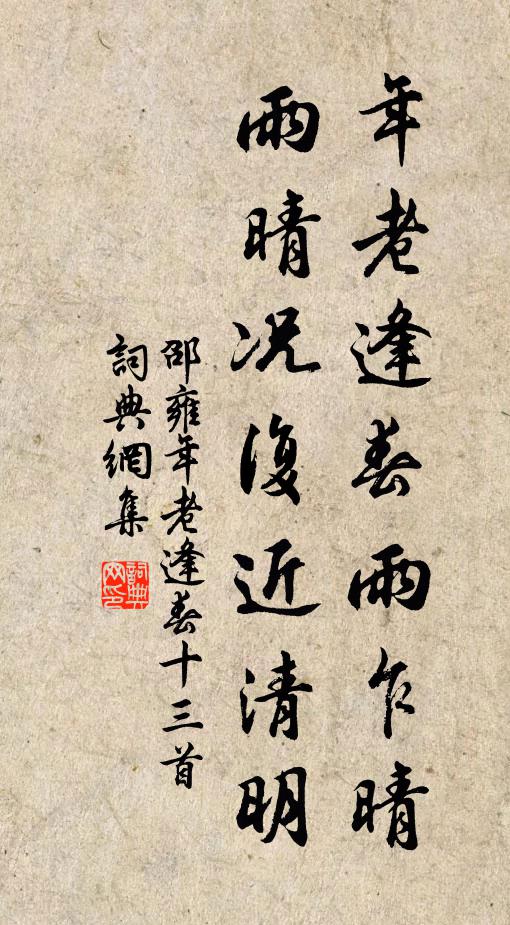 年老逢春雨乍晴
雨晴况復近清明
邵雍年老逢春十三首
詞典網集
詞典网印